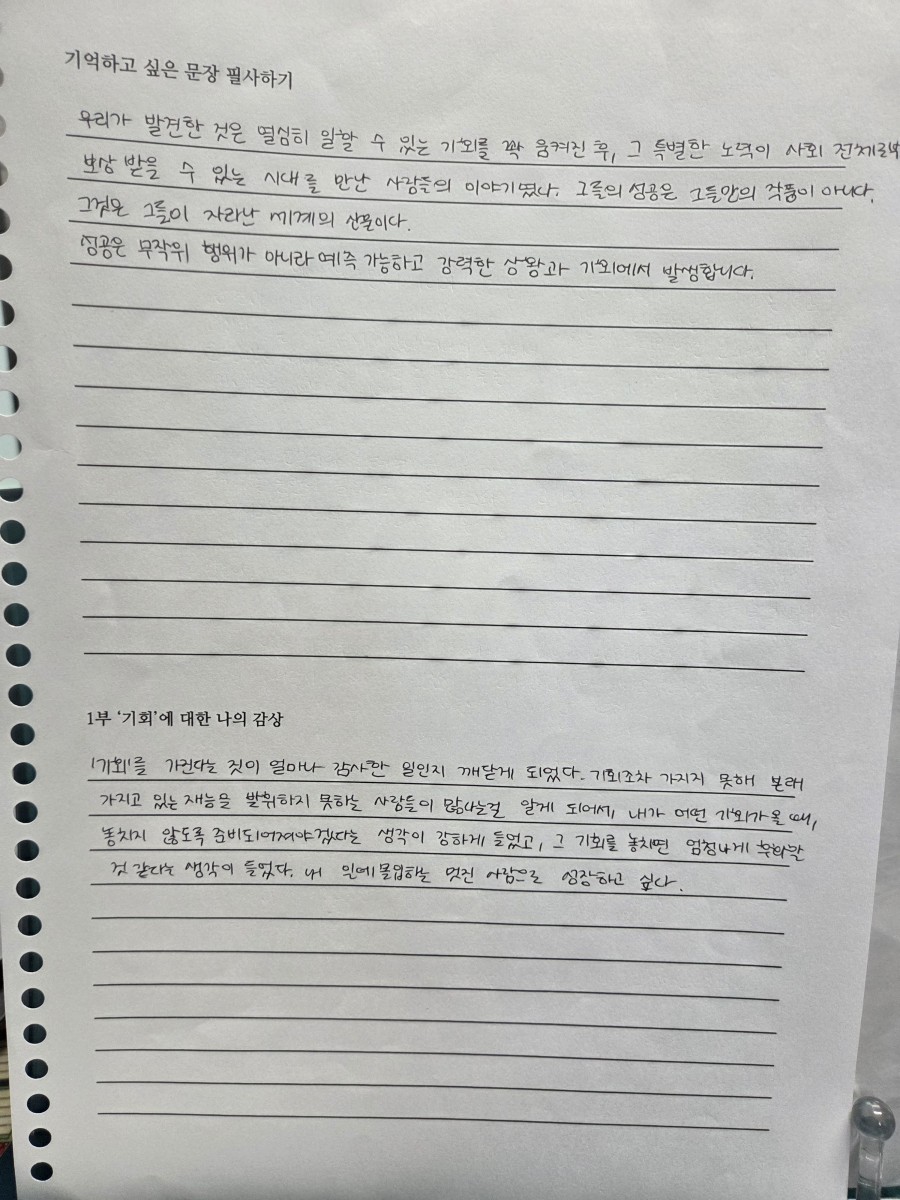 기억하고 싶은 문장 필사하기
우리가 발견한 것은 열심히 일할 수 있는 기회를 꽉 움켜진 후, 그 특별한 노력이 사회 전체로부터
보상 받을 수 있는 시대를 만난 사람들의 이야기였다. 그들의 성공은 그들만의 작품이 아니다.
그것은 그들이 자라난 세계의 산물이다.
성공은 무작위 행위가 아니라 예측 가능하고 강력한 상황과 기회에서 발생합니다.
1부 ‘기회’에 대한 나의 감상
'기회'를 가진다는 것이 얼마나 감사한 일인지 깨닫게 되었다. 기회조차 가지지 못해 본래
가지고 있는 재능을 발휘하지 못하는 사람들이 많다는걸 알게 되어서, 내가 어떤 기회가 올 때,
놓치지 않도록 준비되어져야겠다는 생각이 강하게 들었고, 그 기회를 놓치면 엄청나게 후회할
것 같다는 생각이 들었다. 내 일에 몰입하는 멋진 사람으로 성장하고 싶다.